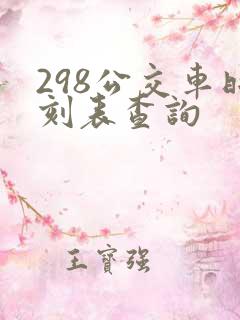 298公交車時
刻表查詢
王寶强